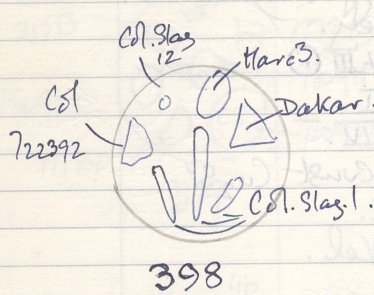 Col. Slag
12
Marc3.
Col
722392
Dakar.
Col. Slag. 1.
398